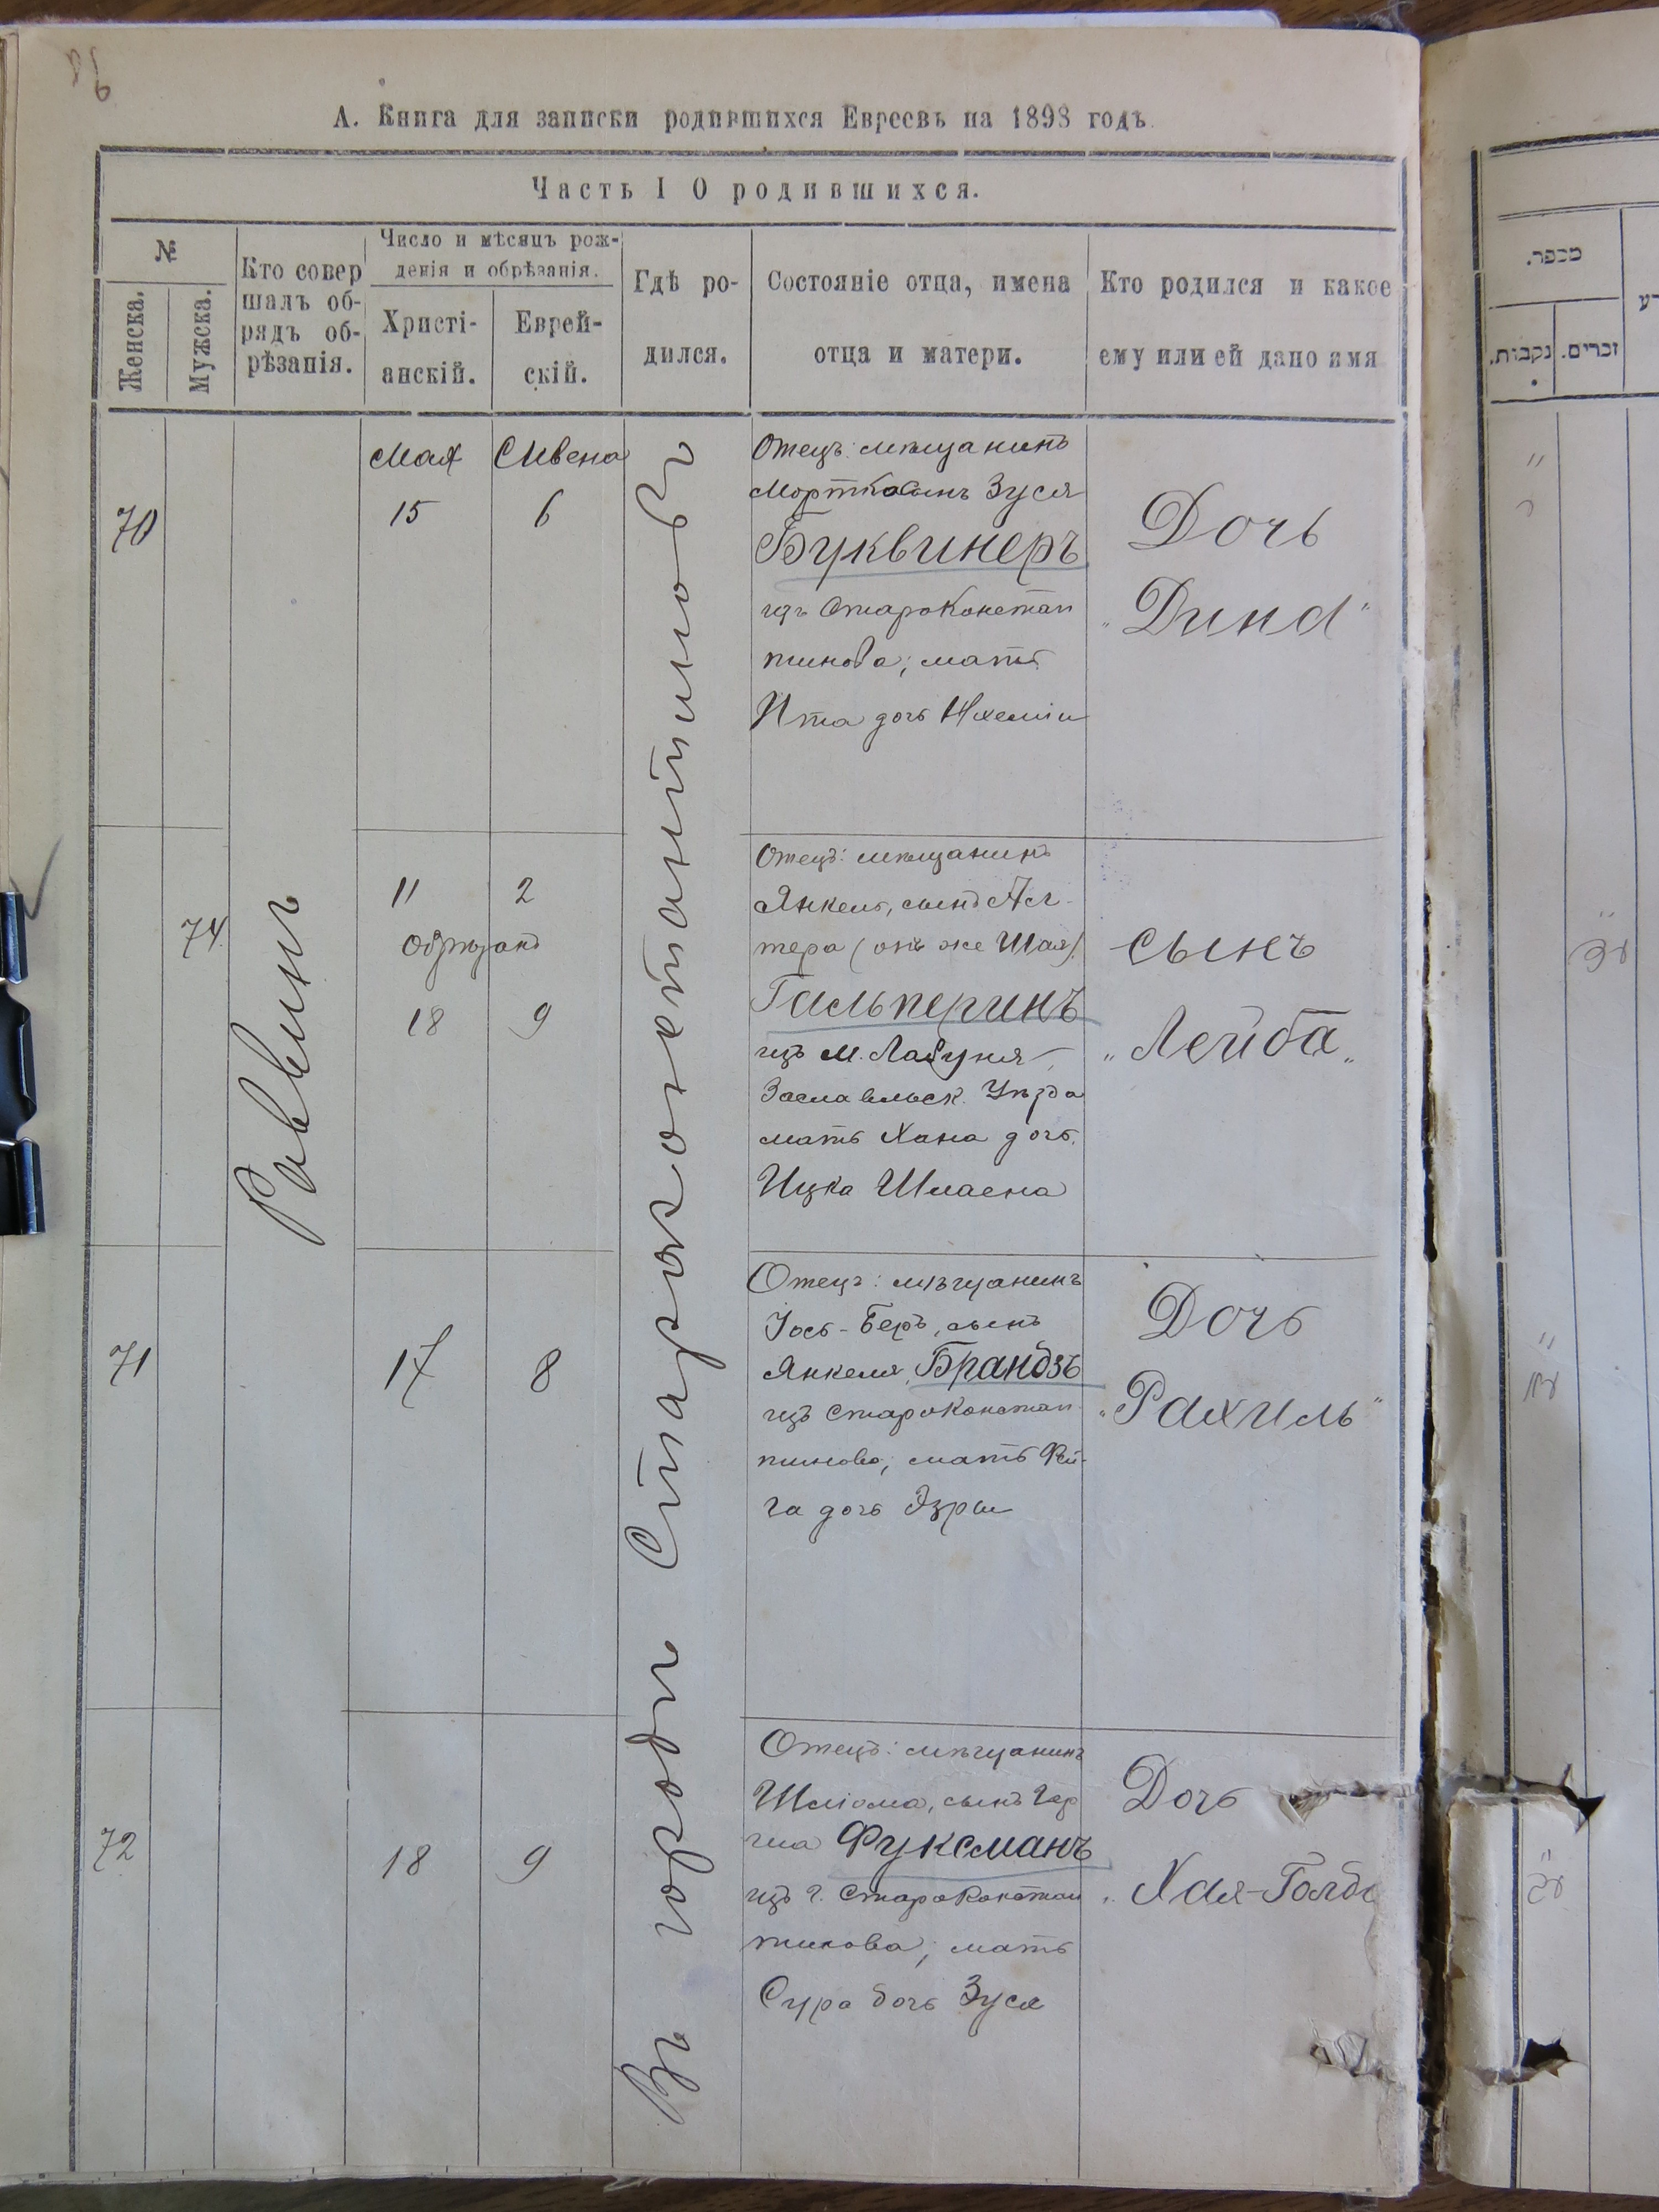 А. Книга для записки родившихся Евреевъ на 1898 годъ
Часть I О родившихся.
№
Женска.
Мужска.
Кто совер
шалъ об-
рядъ об-
рѣзанія.
Число и мѣсяцъ рож-
денія и обрѣзанія.
Христі-
анскій.
Еврей-
скій.
Гдѣ ро-
дился.
Состояніе отца, имена
отца и матери.
Кто родился и какое
ему или ей дано имя
Раввинъ
Въ городѣ Староконстантиновѣ
70
Мая Сивена
15 6
Отецъ: мѣщанинъ
Мортко сынъ Зуся
Буквинеръ
изъ Староконстан
тинова; мать
Ита дочь Нхеміи
Дочь
„Дина"
74
11 2
Обрѣзанъ
18 9
Отецъ: мѣщанинъ
Янкель, сынъ Ал-
тера (онъ же Шая)
Гальперинъ
изъ м. Лабуня
Заславльск. Уѣзда
мать Хана дочь
Ицка Шмаена
Сынъ
„Лейба„
71
17 8
Отецъ: мѣщанинъ
Іось-Беръ, сынъ
Янкеля, Брандзъ
изъ Староконстан-
тинова, мать Фей-
га дочь Эзры
Дочь
„Рахиль"
72
18 9
Отецъ: мѣщанинъ
Шліома, сынъ Гер
Фуксманъ
изъ г. Староконстан
тинова; мать
Сура дочь Зуся
Дочь
„Хая-Голда
מספר.
נקבות.
זכרים.